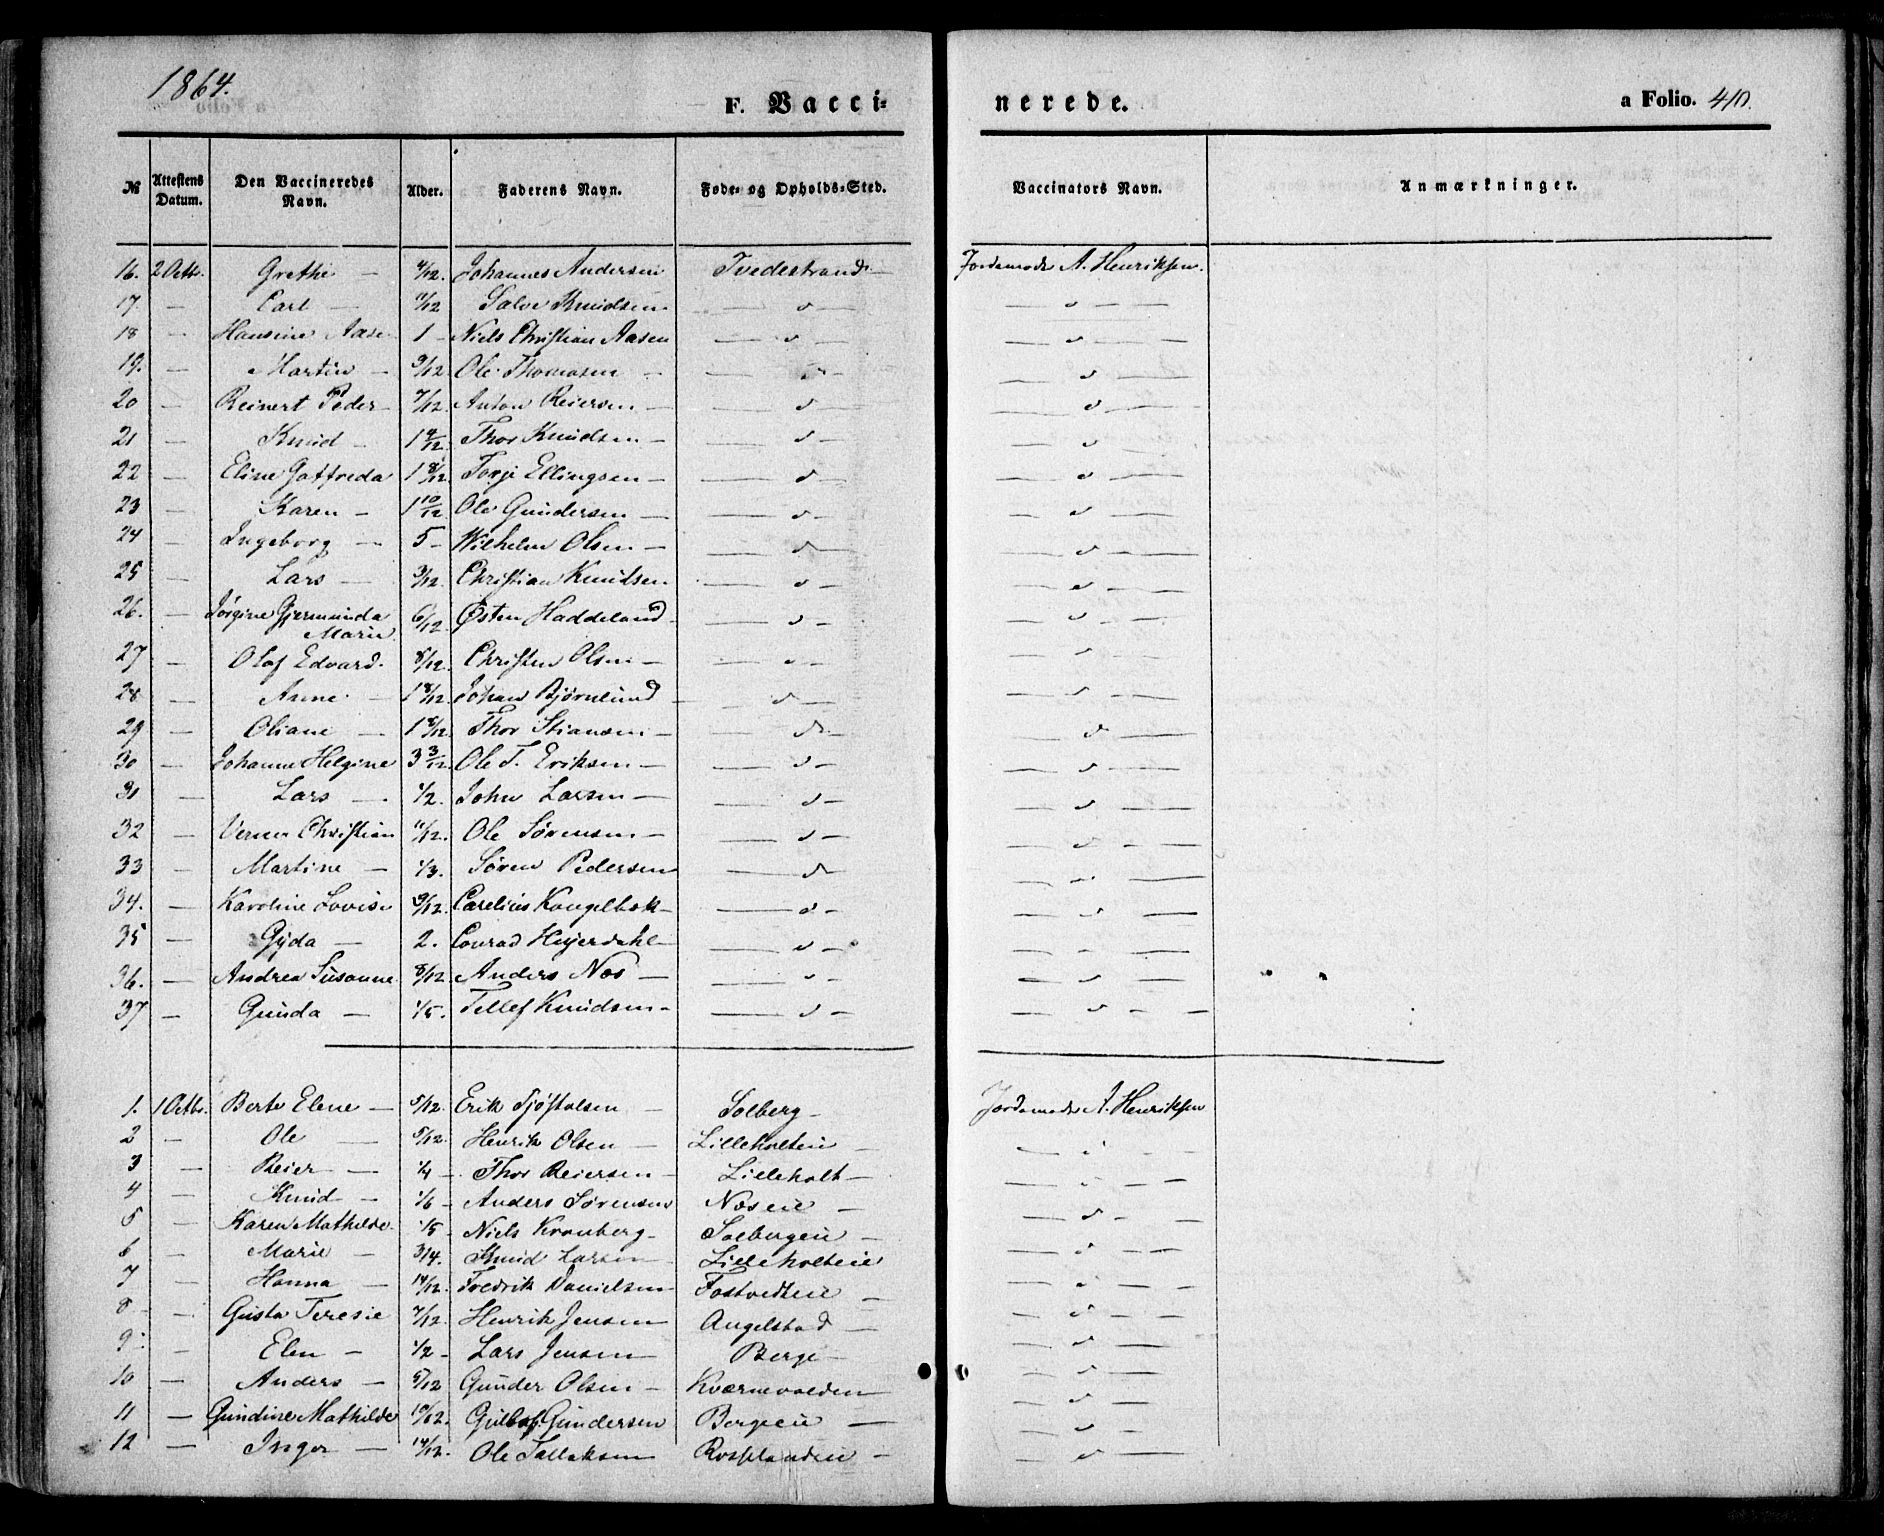 1864.
F. Vacci=
nerede.
a Folio. 410.
№ Attestens Datum. Den Vaccineredes Navn. Alder. Faderens Navn. Føde- og Opholds-Sted. Vaccinators Navn. Anmærkninger.
16. 2 Octb. Grethe — Johannes Andersen Tvedestrand — Jordemoder A. Henriksen.
17. — Carl — 11/12 Salve Knudsen — " — — " —
18 — Hansine Aase 1 — Niels Christian Aasen — " — — " —
19. — Martin — 9/12. Ole Thomasen — — " — — " —
20 — Reinert Peder — 7/12. Anton Reiersen — — " — — " —
21 — Knud — Thor Knudsen — — " — — " —
22 — Eline Gottfreda 1 8/12 Torje Ellingsen — — " — — " —
23 — Karen — 1 10/12 Ole Gundersen — — " — — " —
24 — Ingeborg — 5 — Wilhelm Olsen — — " — — " —
25 — Lars — 3/12. Christian Knudsen — " — — " —
26. — Jørgine Gjermunda Marie 6/12 Østen Haddeland — " — — " —
27 — Olaf Edvard. 8/12. Christen Olsen — — " — — " —
28 — Anne — 1 8/12. Johan Bjørnlund — — " — — " —
29 — Oliane — 1 8/12. Thor Stiansen — — " — — " —
30 — Johanne Helgine 3 3/12. Ole T. Eriksen — — " — — " —
31 — Lars — 1/2. John Larsen — — " — — " —
32 — Verner Christian 11/12. Ole Sørensen — — " — — " —
33 — Martine — 1/3. Søren Pedersen — " — — " —
34. — Karoline Lovise 9/12. Carelius Kongelbæk — — " — — " —
35 — Gyda — 2. Conrad Heyerdahl — — " — — " —
36. — Andrea Susanne 8/12. Anders Næs — — " — — " —
37 — Gunda — 1/5. Tellef Knudsen — — " — — " —
1. 1 Octbr. Berte Elene — 5/12. Erik Tjøstolsen — Solberg — Jordemoder A. Henriksen
2 — Ole — 5/12. Henrik Olsen — Lilleholteie — — " —
3 — Reier — 1/4 — Thor Reiersen — Lilleholt — — " —
4 — Knud — 1/6 — Anders Sørensen Næseie — — " —
5 — Karen Mathilde. 1/5 — Niels Kronberg — Solbergeie — — " —
6 — Marie — 3/4. Knud Larsen Lilleholteie — " —
7 — Hanna — 14/12. Fredrik Danielsen Fostvedteie — — " —
8 — Gusta Teresie 7/12 Henrik Jensen Angelstad — — " —
9 — Elen — 1/2 — Lars Jensen Berge — — " —
10 — Anders — 5/12 Gunder Olsen — Kværnevolden — " —
11 — Gundine Mathilde 10/12. Gullof Gundersen Bergeeie — — " —
12 — Inger — 14/12. Ole Tallaksen — " —